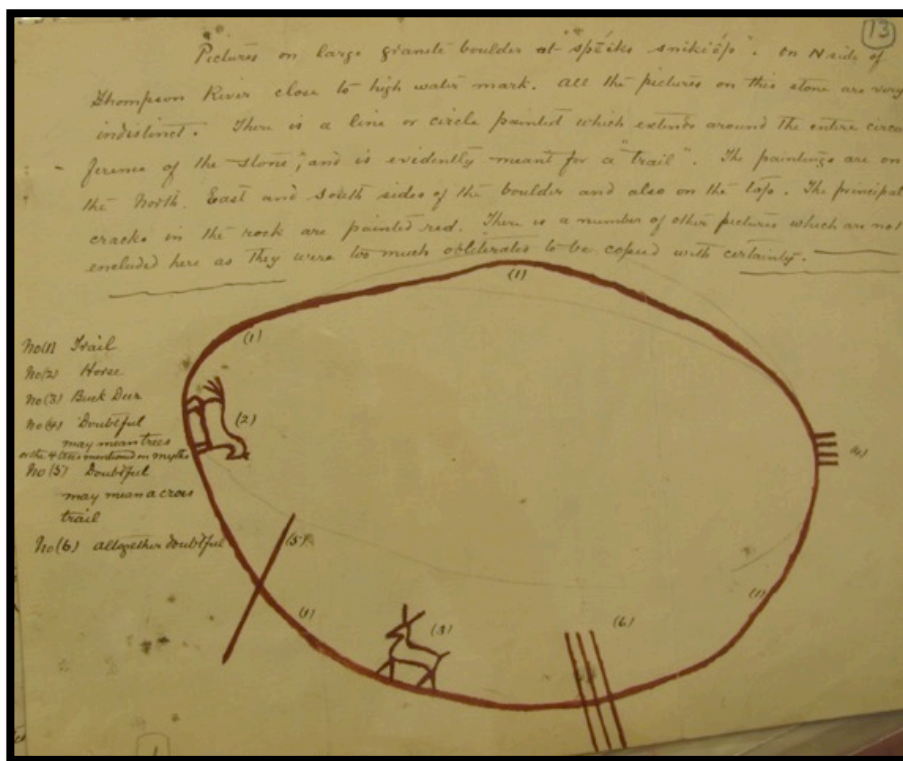 13
Pictures on large granite boulder at "spēiks snikiēp". On N side of
Thompson River close to high water mark. All the pictures on this stone are very
indistinct. There is a line or circle painted which extends around the entire circum
ference of the stone, and is evidently meant for a "trail". The paintings are on
the North. East and South sides of the boulder and also on the top. The principal
cracks in the rock are painted red. There is a number of other pictures which are not
encluded here as they were too much obliterated to be copied with certainty.
(1)
(1)
No(1) Trail
No(2) Horse
No(3) Buck Deer
(2)
No(4) Doubtful
may mean trees
or the 4 trees mentioned in myths
(4)
No(5) Doubtful
may mean a cross
trail
No(6) altogether doubtful
(5)
(1)
(1)
(3)
(6)